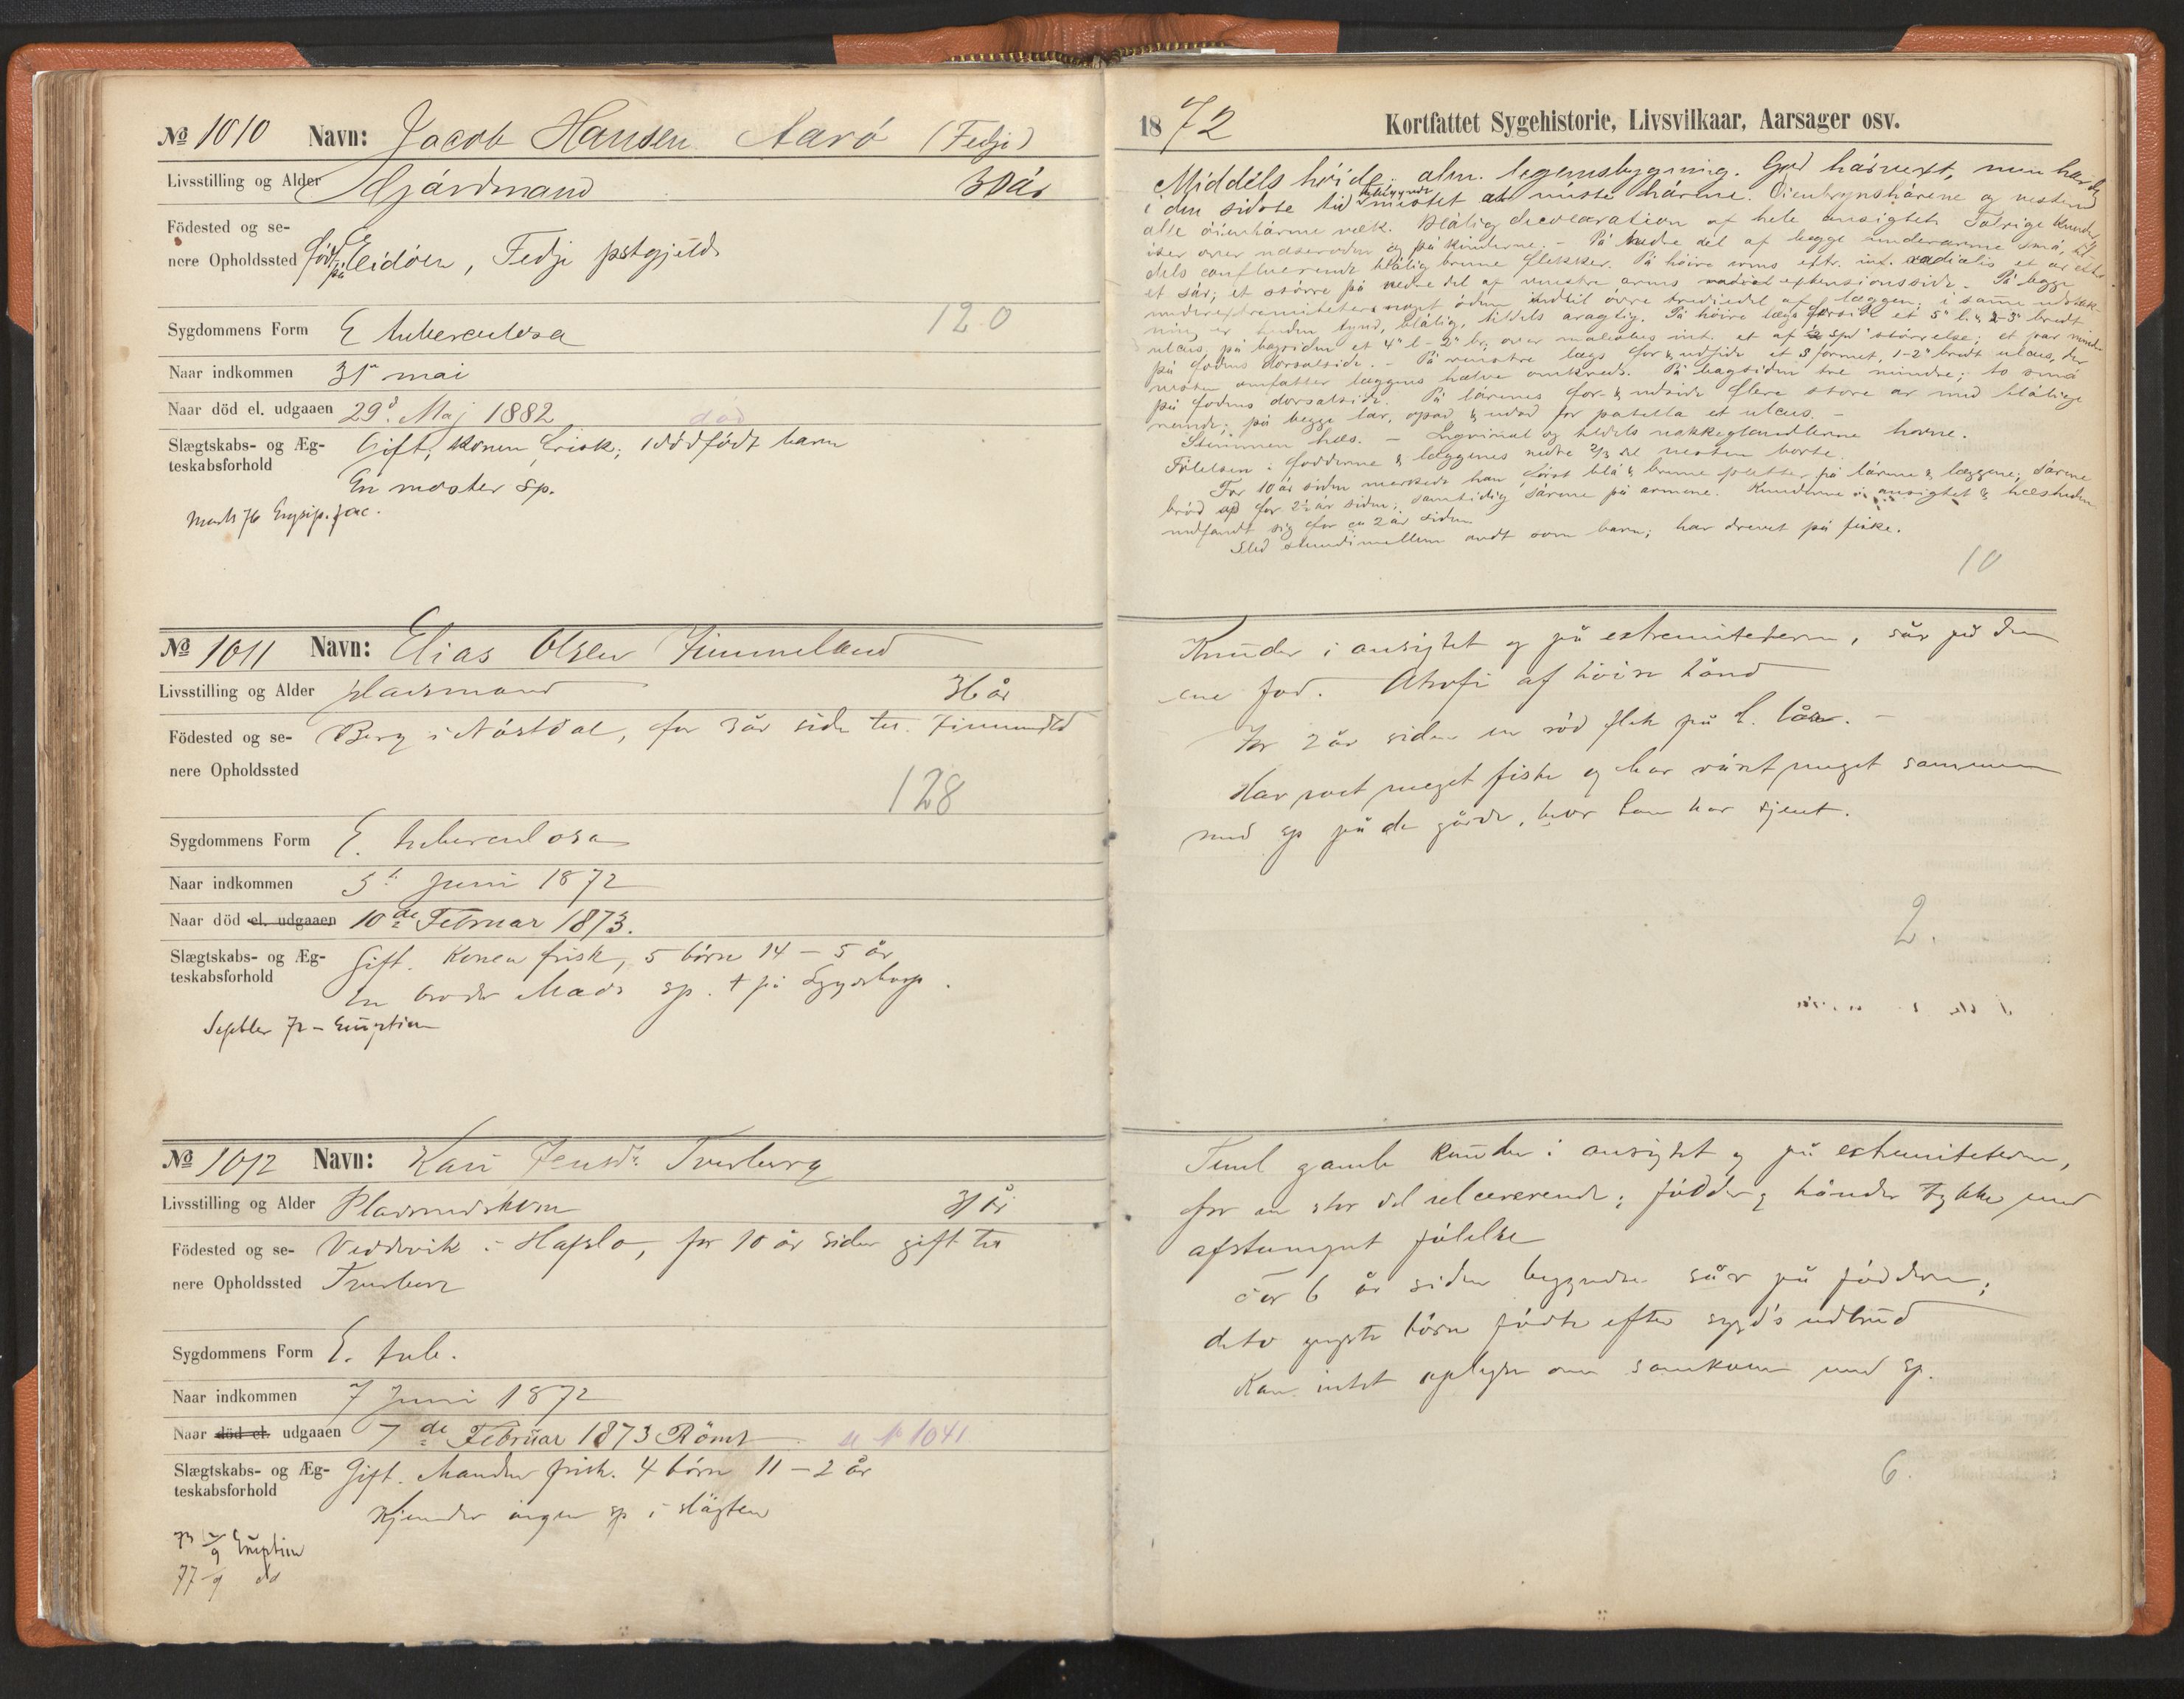 № 1010 Navn: Jacob Hansen Aarö (Fedje)
Livsstilling og Alder Gjårdmand 30 år
Födested og se-
nere Opholdssted født på Eidöen, Fedje pstgjeld
120
Sygdommens Form E tuberculosa
Naar indkommen 31 mai
Naar död el. udgaaen 29d. Maj 1882 död
Slægtskabs- og Æg-
teskabsforhold Gift, konen frisk; 1 dödfödt barn
En moster sp.
Marts 76 Erysip. fac.
№ 1011 Navn: Elias Olsen Timmeland
Livsstilling og Alder pladsmand 36 år
Födested og se-
nere Opholdssted Berg i Nöstdal, for 3 år side til
128
Sygdommens Form E. tuberculosa
Naar indkommen 5t Juni 1872
Naar död el. udgaaen 10de Februar 1873.
Slægtskabs- og Æg-
teskabsforhold Gift. Konen frisk, 5 börn 14 – 5 år
En broder Mads sp. † på
Septbr 72 – Eruption
№ 1012 Navn: Kari Jensdr. Tverberg
Livsstilling og Alder Pladsmdskone 31 år
Födested og se-
nere Opholdssted Veddvik i Hafslo, for 10 år siden gift til
Tverberg
Sygdommens Form E. tub.
Naar indkommen 7 Juni 1872
Naar död el. udgaaen 7de Februar 1873 Römt № 1041
Slægtskabs- og Æg-
teskabsforhold Gift. Manden frisk. 4 börn 11 – 2 år
Kjender ingen sp i slägten
73 Eruption
77
1872 Kortfattet Sygehistorie, Livsvilkaar, Aarsager osv.
Middels höide, alm. legemsbygning. God hårvext, men har dog
i den sidste tid begyndt at miste hårene. Öienbrynshårene og nesten
alle öienhårene væk. Blålig decoloration af hele ansigtet. Talrige knuder
især over næseroden og på kinderne. – På nedre del af begge underarme små,
dels confluerende blålig brune flekker. På höire arms radialis et ar efter
et sår; et större på nedre del af venstre arms extensionsside. – På begge
underextremiteter noget ödem indtil övre trediedel af læggen; i samme udstræk-
ning er huden tynd, blålig, tildels aragtig. På höire lægs forside et 5" l. & 2-3" bredt
ulcus, på bagsiden et 4" l – 2" br; over malleolus int. et af störrelse; et par mindre
på fodens dorsalside. – På venstre lægs for & udside et formet, 1-2" bredt ulcus, der
nesten omfatter læggens halve omkreds. På bagsiden tre mindre; to små
på fodens dorsalside. På lårenes for- & udside flere store ar med blålige
rande; på begge lår, opad & udad for patella et ulcus. –
Stemmen hæs. – Inguinal og tildels nakkeglandlerne hovne.
Fölelsen i födderne & læggenes nedre 2/3 del nesten borte.
For 10 år siden merkede han först blå & brune pletter på lårene & læggene; sårene
bröd op for 2½ år siden; samtidig sårene på armene. Knuderne i ansigtet & hæsheden
indfandt sig for ca 2 år siden
Led stundimellem ondt som barn; har drevet på fiske.
10
Knuder i ansigtet og på extremiteterne, sår på den
ene fod. Atrofi af höire hånd
For 2 år siden en röd flek på l. lår. –
Har roet meget fiske og har väret meget sammen
med sp på de gårde, hvor han har tjent.
2.
Teml gamle knuder i ansigtet og på extremiteterne,
for en stor del ulcererende; födder og hånder tykke med
afstumpet fölelse
For 6 år siden begyndte sår på födderne;
de to yngste börn födte efter sygd's udbrud
Kan intet oplyse om samkvem med sp.
6.